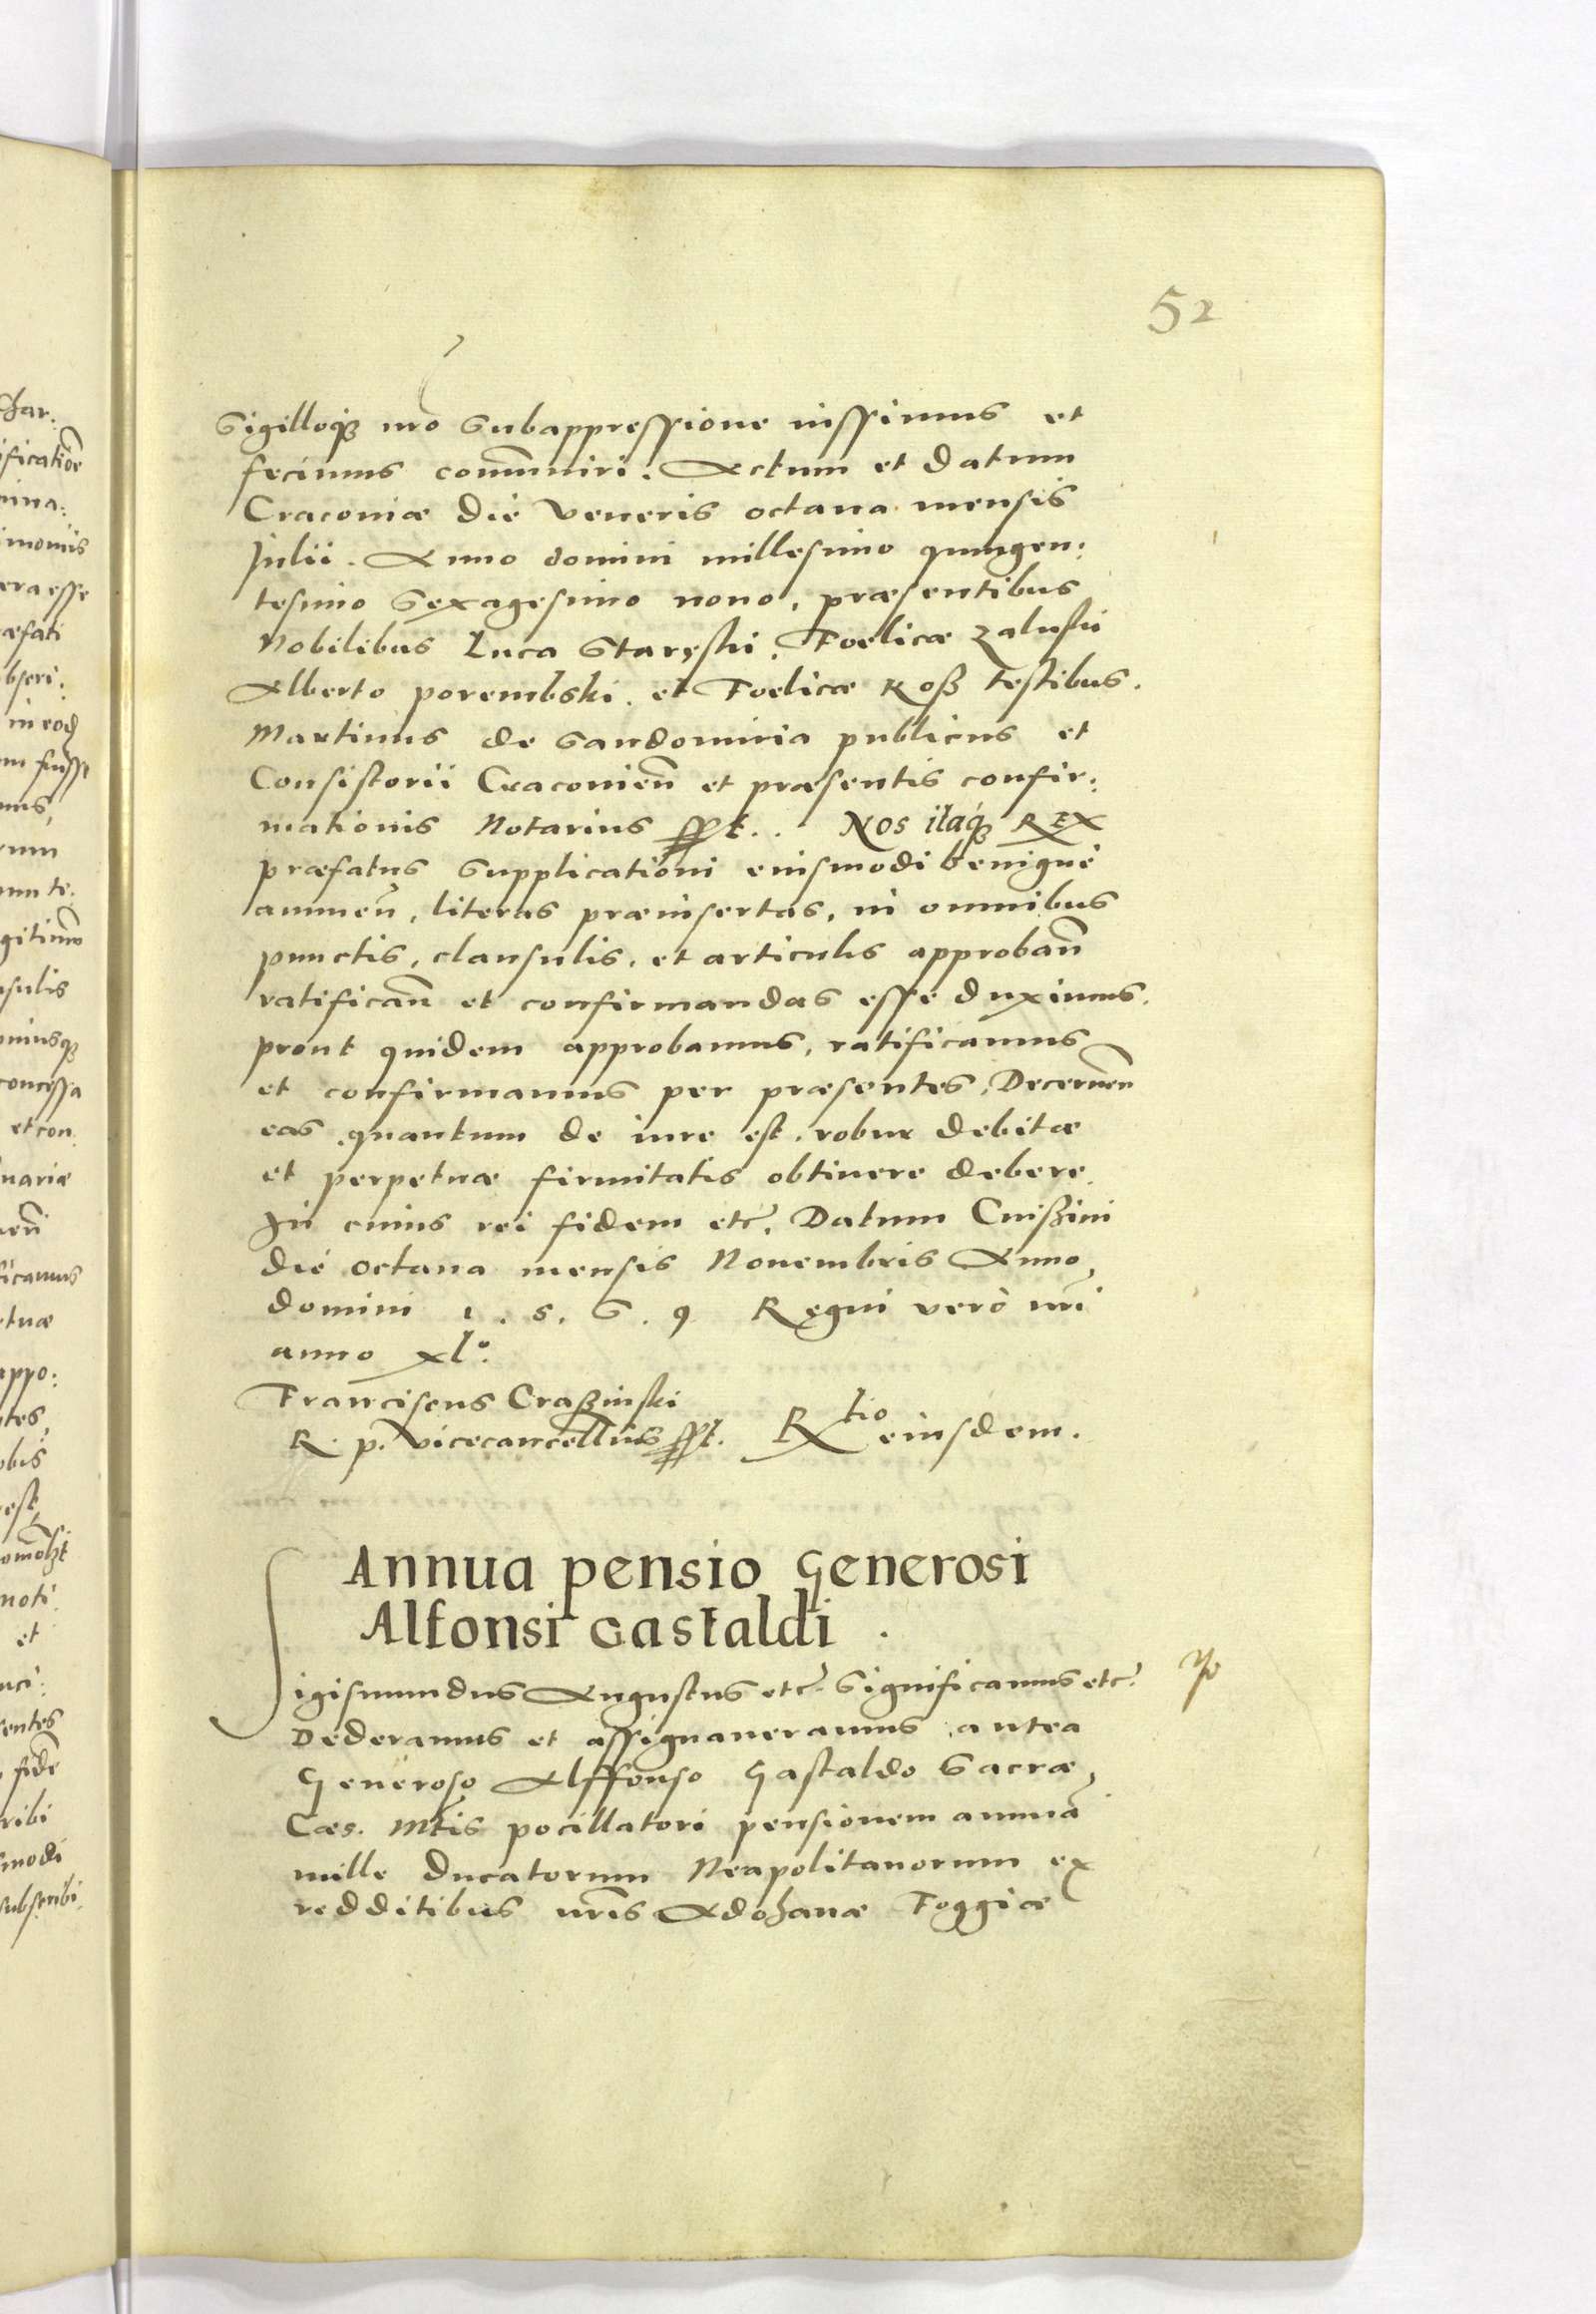 52
Sigilloq3 nrõ Subappressione iussimus et
fecimus com̃muniri. Actum et datum
Cracoviæ die Veneris octava mensis
Julii. Anno domini millesimo quingen:
tesimo Sexagesimo nono, præsentibus
Nobilibus Luca Starzski. Foelicæ Zaluski
Alberto porembski. et Foelicæ Roß testibus.
Martinus de Sandomiria publicus et
Consistorii Cracovien̄ et præsentis confir:
mationis Notarius sspt.. Nos itaq3 REX
præfatus Supplicationi eiusmodi benignè
annuen̄, literas præinsertas, in omnibus
punctis, clausulis, et articulis approban̄
ratifican̄ et confirmandas esse duximus.
prout quidem approbamus, ratificamus
et confirmamus per præsentes, Decernen̄
eas quantum de iure est, robur debitæ
et perpetuæ firmitatis obtinere debere.
In cuius rei fidem etc̃. Datum Cnißini
die octava mensis Novembris Anno
domini 1. 5. 6. 9 Regni verò nrĩ
anno xlº.
Franciscus Craßinski
R. p. Vicecancellius sspt. Rtio eiusdem.
Annua pensio Generosi
Alfonsi Gastaldi.
Sigismundus Augustus etc̃. Significamus etc̃.
Dederamus et assignaveramus antea
Generoso Alffonso Gastaldo Sacræ
Cæs. Mt̃is pocillatori pensionem annuã
mille Ducatorum Neapolitanorum ex
redditibus nrĩs Adohanæ Foggiæ